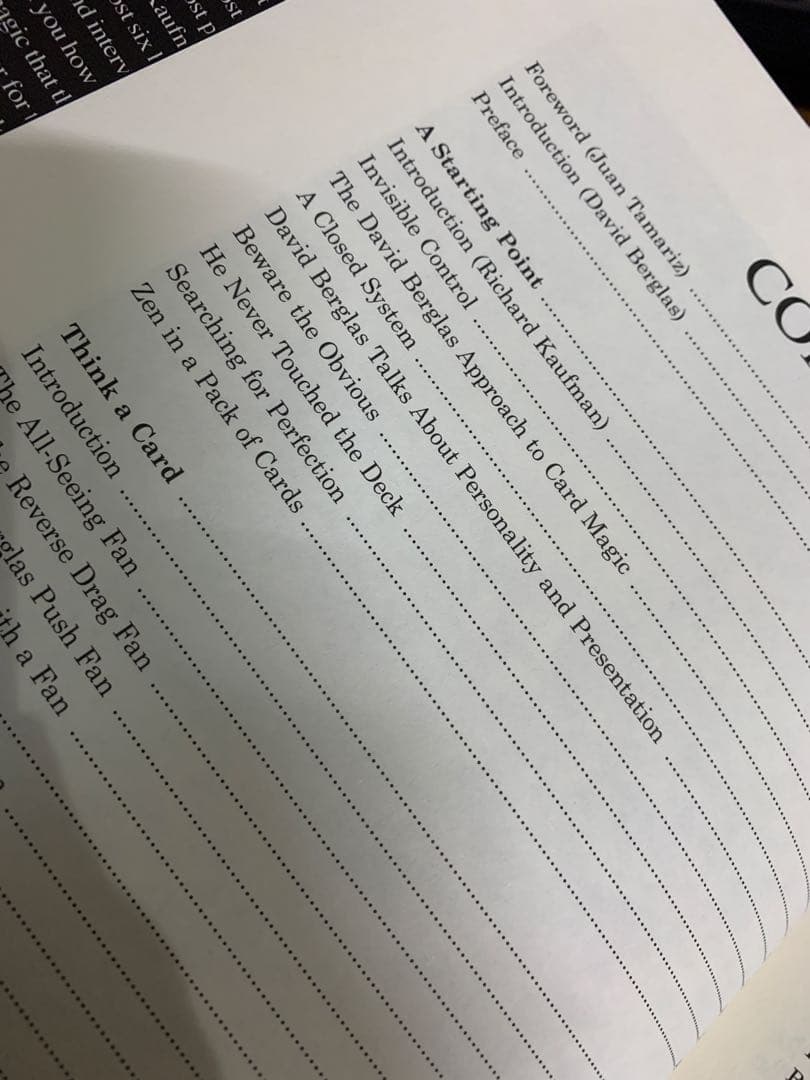 Foreword (Juan Tamariz)
Introduction (David Berglas)
Preface
A Starting Point
Introduction (Richard Kaufman)
Invisible Control
The David Berglas Approach to Card Magic
A Closed System
David Berglas Talks About Personality and Presentation
Beware the Obvious
He Never Touched the Deck
Searching for Perfection
Zen in a Pack of Cards
Think a Card
Introduction
The All-Seeing Fan
Reverse Drag Fan
Push Fan
a Fan
you how
that
for
six